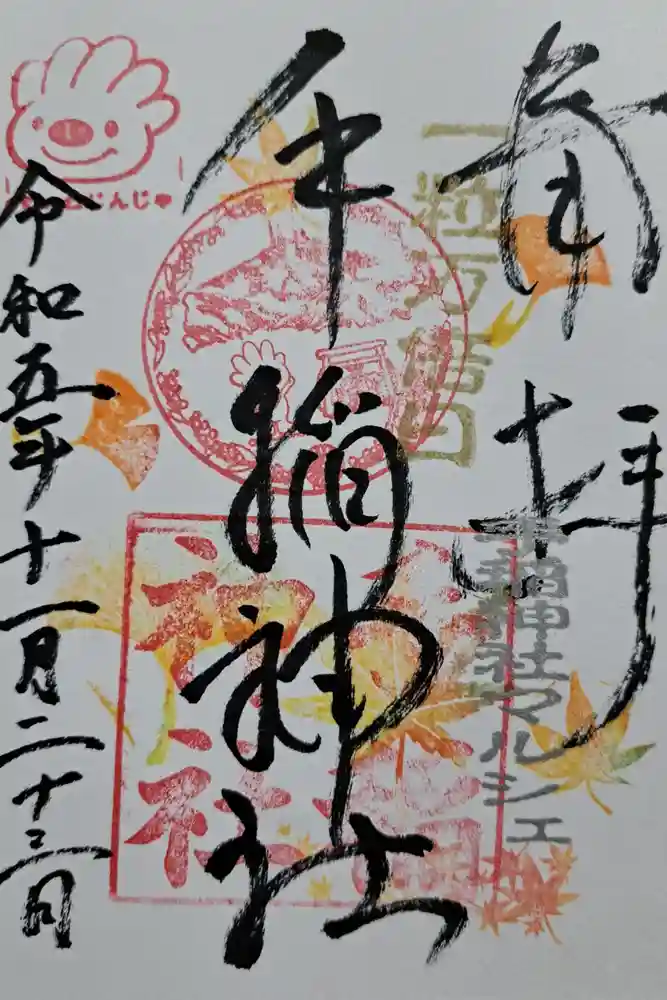 奉拝
一粒万倍日
手稲神社マルシェ
手稲神社
手稲
神社
じんじゃ
令和五年十一月二十三日